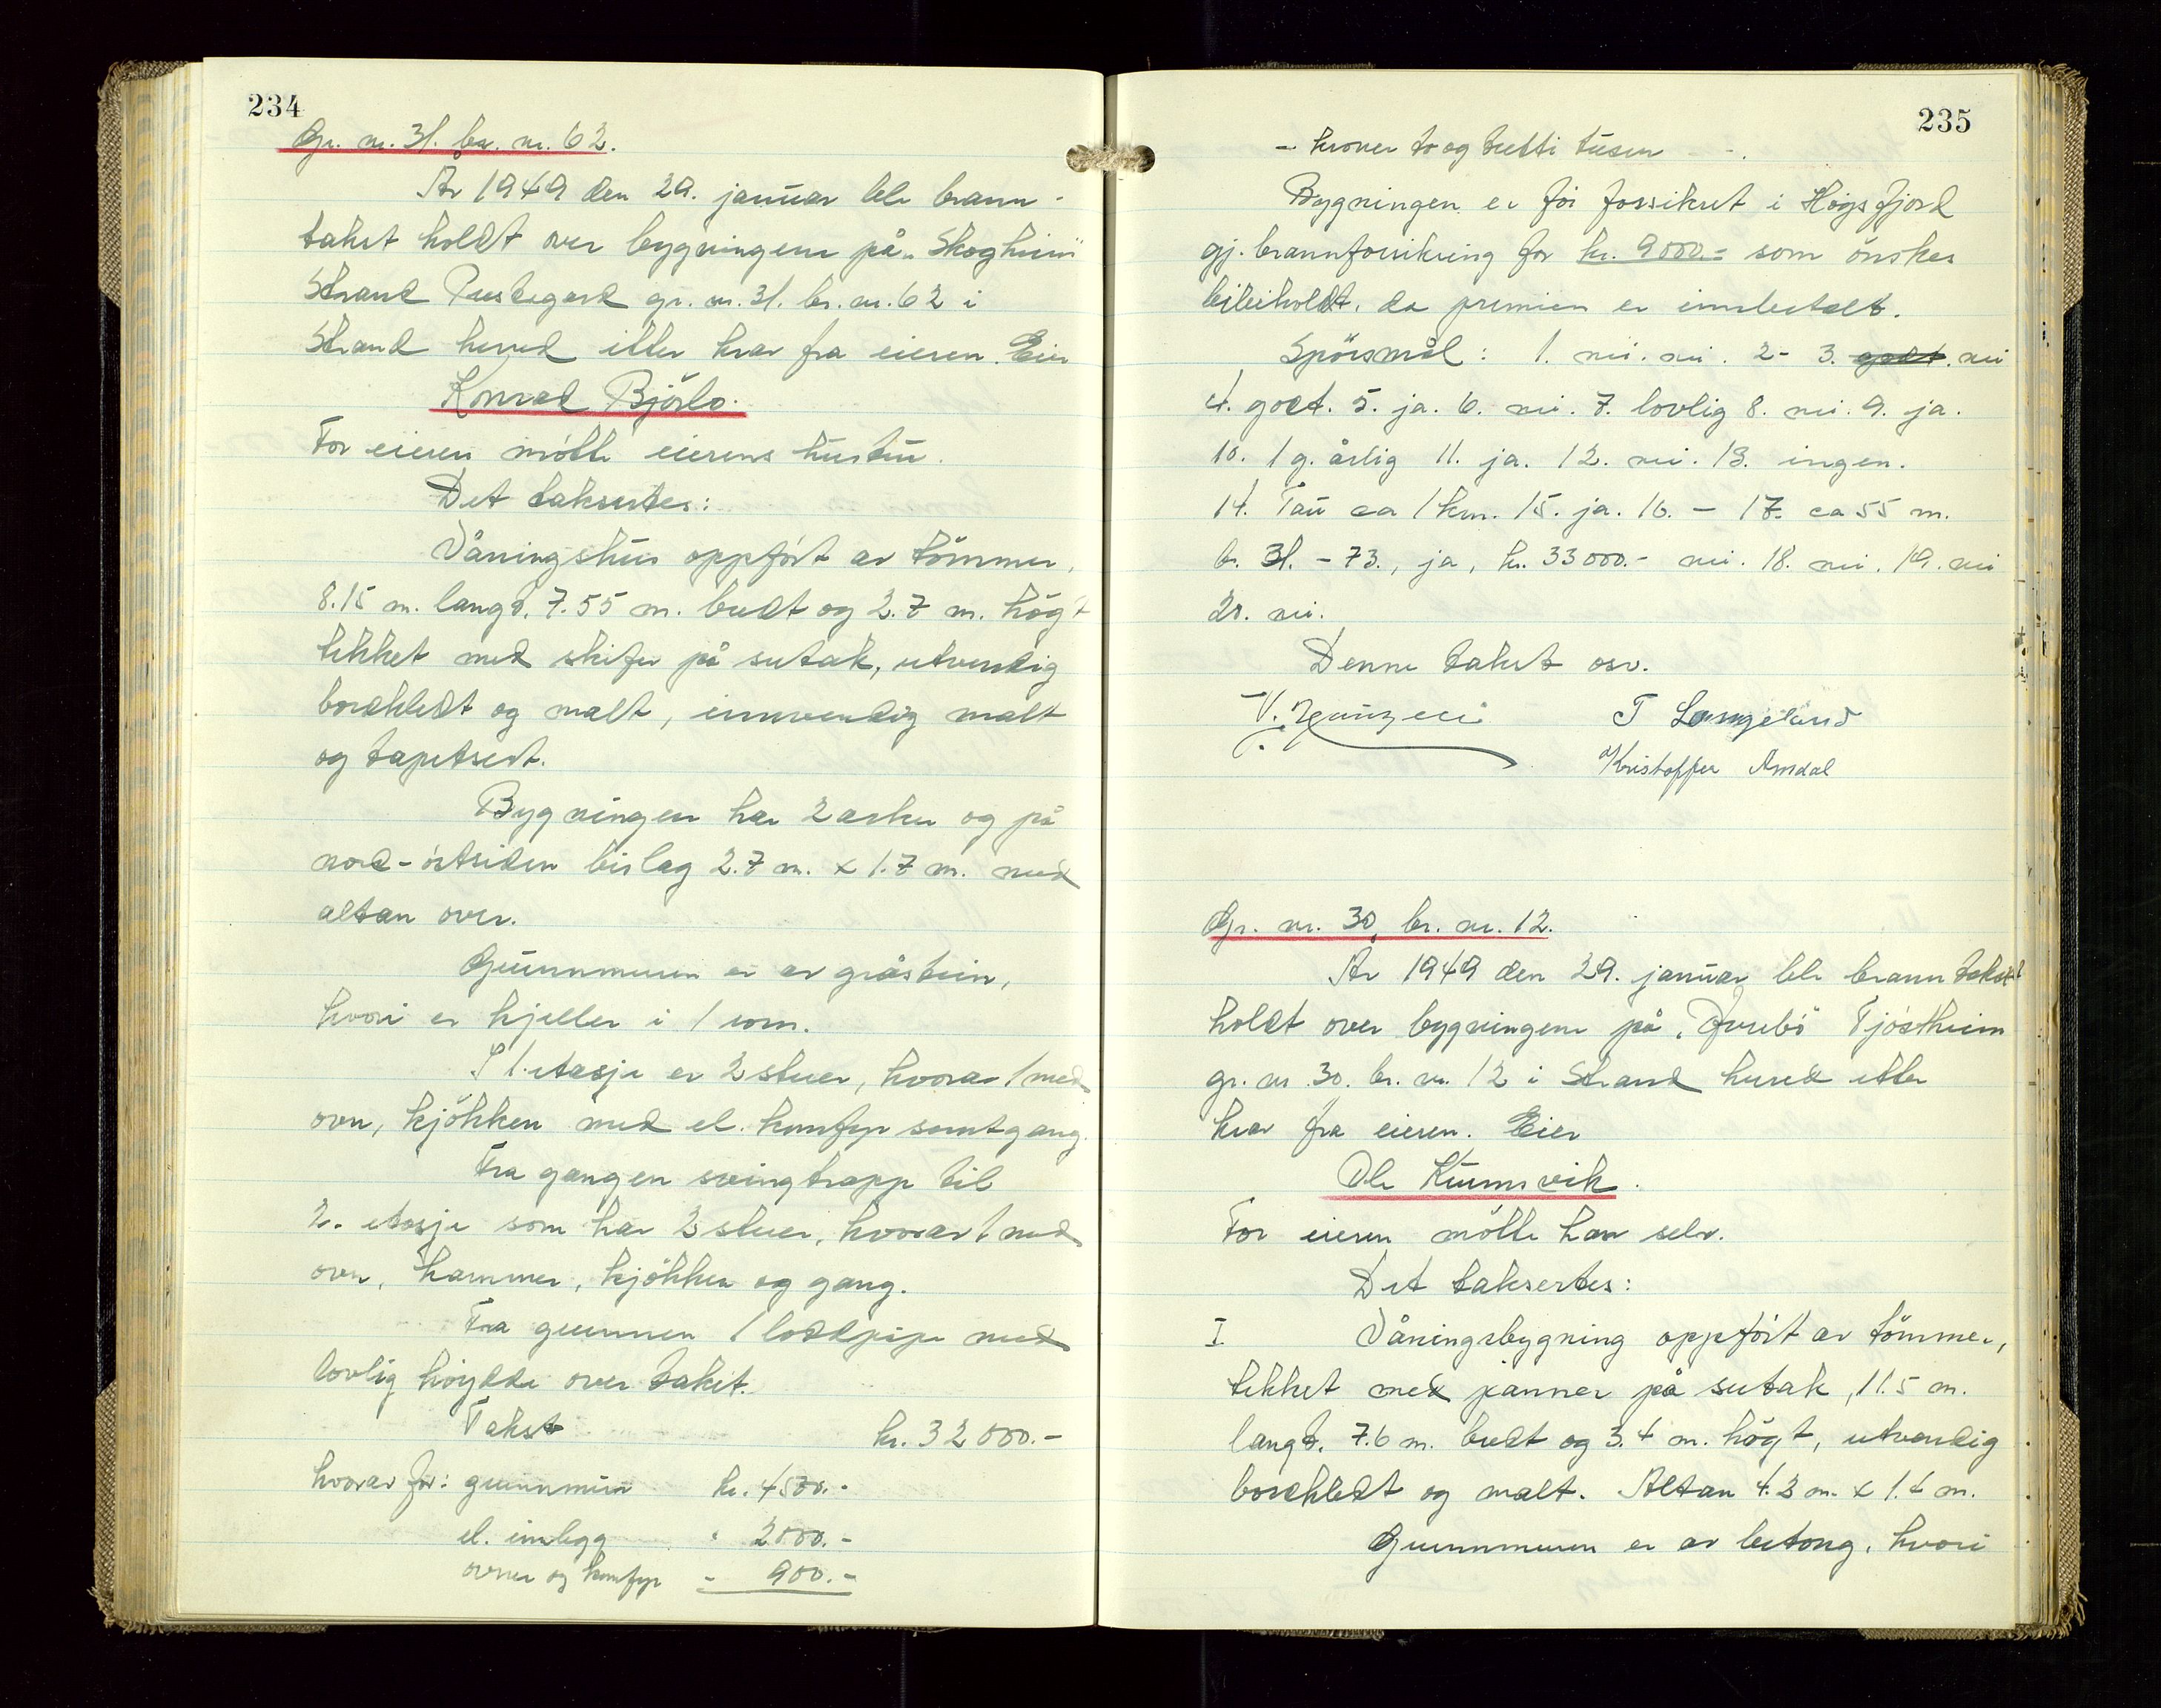 234
Gr. nr. 31. br. nr. 62.
År 1949 den 29. januar ble brann-
takst holdt over bygningene på „Skogheim"
Strand Prestegard gr. nr. 31. br. nr. 62 i
Strand herred etter krav fra eieren. Eier
Konrad Björlo.
For eieren mötte eierens hustru.
Det taksertes:
Våningshus oppfört av tömmer,
8.15 m. langt, 7.55 m. bredt og 2.7 m. högt
tekket med skifer på sutak, utvendig
bordkledt og malt, innvendig malt
og tapetsert.
Bygningen har 2 arker og på
nord-östsiden bislag 2.7 m. x 1.7 m. med
altan over.
Grunnmuren er av gråstein,
hvori er kjeller i 1 rom.
I 1. etasje er 2 stuer, hvorav 1 med
ovn, kjökken med el. komfyr samt gang.
Fra gangen svingtrapp til
2. etasje som har 2 stuer, hvorav 1 med
ovn, kammer, kjökken og gang.
Fra grunnen 1 loddpipe med
lovlig höydde over taket.
Takst kr. 32000.-
hvorav for: grunnmur kr. 4500.-
el. innlegg " 2000.-
ovner og komfyr - 900.-
235
- kroner to og tretti tusen - .
Bygningen er för forsikret i Högsfjord
gj. brannforsikring for kr. 9000.- som önskes
bibeholdt, da premien er innbetalt.
Spörsmål: 1. nei. nei. 2- 3. godt. nei
4. godt. 5. ja. 6. nei. 7. lovlig 8. nei. 9. ja.
10. 1 g. årlig 11. ja. 12. nei. 13. ingen.
14. Tau ca 1 km. 15. ja. 16. - 17. ca 55 m.
b. 31. - 73., ja, kr. 33000.- nei. 18. nei. 19. nei
20. nei.
Denne takst osv.
T Langeland
Kristoffer Amdal
Gr. nr. 30, br. nr. 12.
År 1949 den 29. januar ble branntakst
holdt over bygningene på Tjöstheim
gr. nr. 30. br. nr. 12 i Strand herred etter
krav fra eieren. Eier
Ole Kumsvik.
For eieren mötte han selv.
Det taksertes:
I Våningsbygning oppfört av tömmer,
tekket med panner på sutak, 11.5 m.
langt. 7.6 m. bredt og 3.4 m. högt, utvendig
bordkledt og malt. Altan 4.3 m. x 1.4 m.
Grunnmuren er av betong, hvori